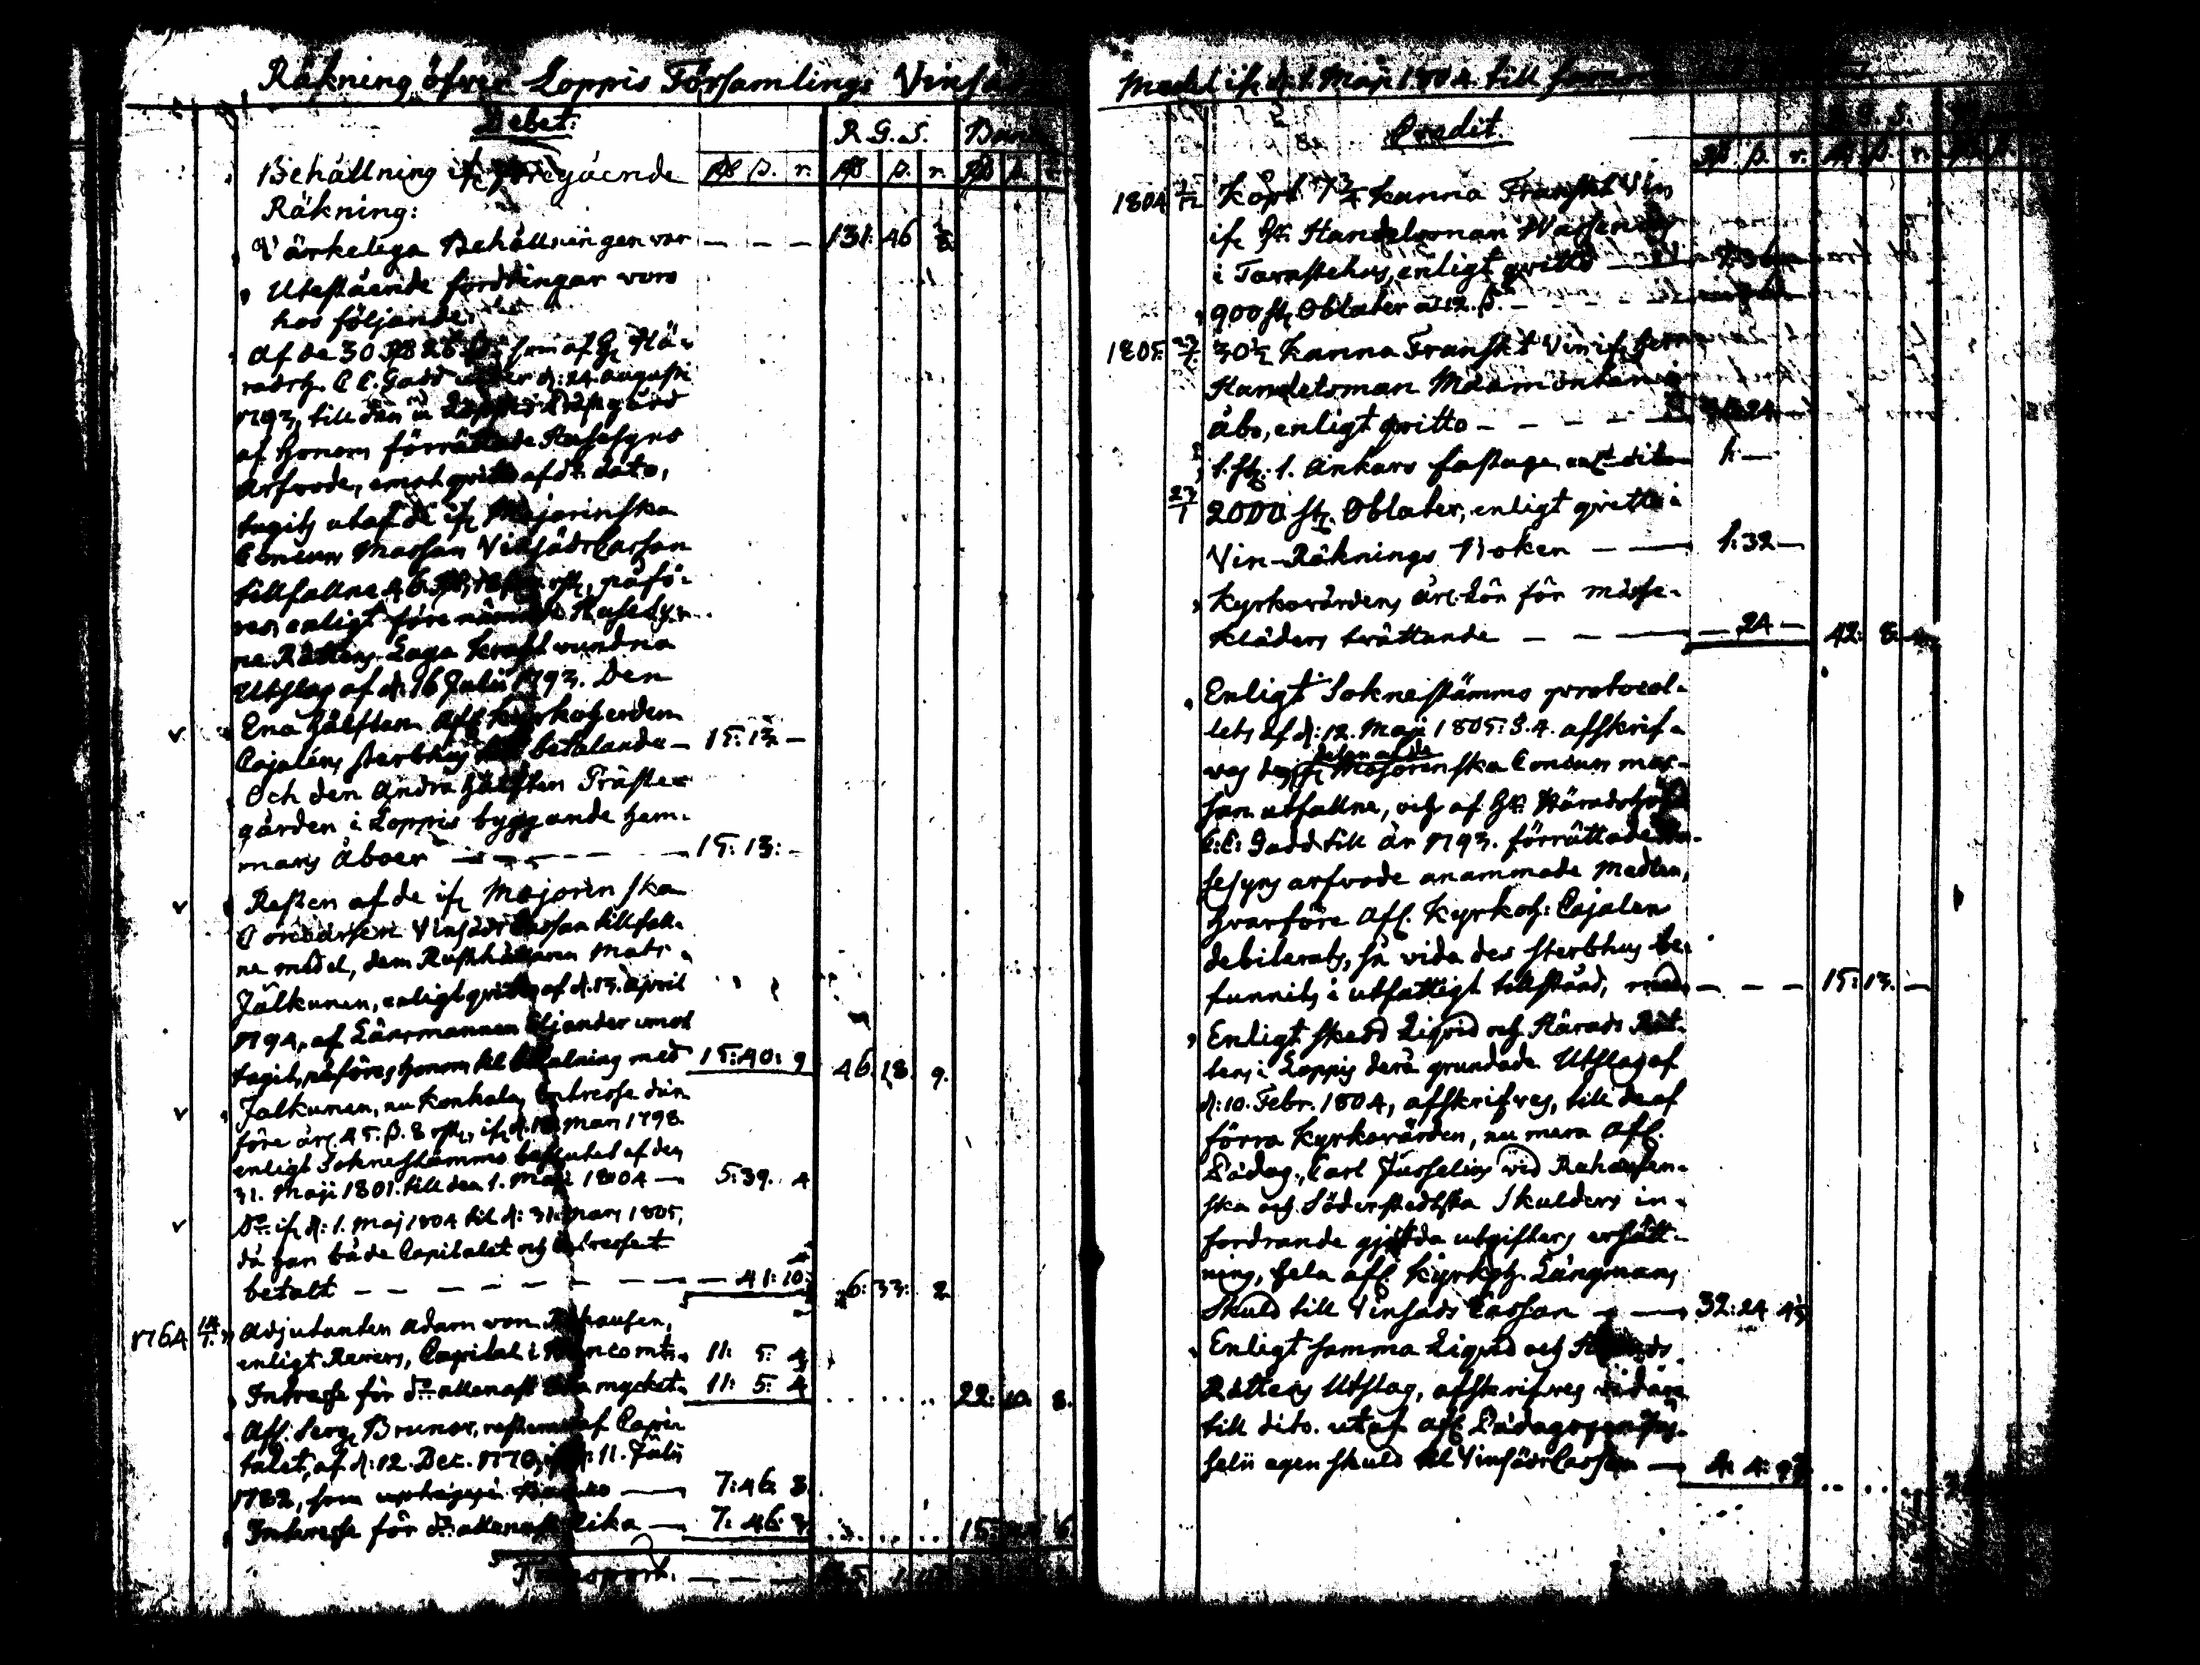 Räkning öfver Loppis Församlings Vinsäds
Debet. R.G.S. Banco
Behållning ifr. föregående Rd ß. r. Rd ß. r. Rd ß.
Räkning:
Värkeliga Behållningen var — — — 131: 46
Utestående fordringar voro
hos följande:
af de 30 Rd 26 ß. som af Hr Hä-
radsh. C C. Gadd under d: 24. Augusti
1793, till den å Loppis Prästgård
af Honom förrättade Husesyns
Arfvode, emot qvitto af do dato,
tagits utaf de ifr. Majorinska
Concurs Massan Vinsäds Cassan
tillfallne 46 Rd påfö-
res, enligt förenämnde Husesy-
ne Rättens Laga Kraft vundna
Utslag af d. 16 Julii 1793. Den
Ena Hälften Afl. Kyrkoherden
Cajaléns sterbhus till betalande — 15: 13 —
Och den Andra Hälften Präste-
gården i Loppis byggande Hem-
mans Åboer — — — — 15: 13: —
Resten af de ifr. Majorinska
Concursen Vinsäds Cassan tillfall-
ne medel, dem Rusthållaren Mats
Jälkunen, enligt qvitto af d. 13. April
1794, af Länsmannen Eljander emot
tagit, påföres honom till betalning med 15: 40: 9 46. 18. 9.
Jalkunen, nu Konkolas Intresse där
före årl. 45. ß. 8 rst., ifr. d. 18 Mars 1798.
enligt Sokne Stämmo beslutet af den
31. Maji 1801. till den 1. Maji 1804 — 5: 39. 4
Do. ifr. d: 1. Maj 1804 til d: 31. Mars 1805,
då han både Capitalet och Intresset
betalt — — — — — — — 41: 10: 6: 33: 2
1764 Adjutanten Adam von Rehausen,
enligt Revers, Capital i Banco mt. 11: 5: 4
Intresse för do. allenast lika mycket. 11: 5: 4 22: 10. 8.
Afl. Serg. Brunor, resterande af Capi-
talet, af d: 12. Dec. 1770, ifr. d: 11. Julii
1782, som Banco — 7: 46 3
Intresse för do. allenast lika — 7: 46: 3 15: 6
Transport. — — —
Medel ifr. d. 1. Maji 1804 till
Credit.
Rd ß. r. Rd ß. r.
1804 Köpt 7 3/4 Kanna Franskt Vin
ifr. Hr. Handelsman
i Tavastehus, enligt qvitto —
900 st. Oblater a 12. ß. —
1805. 30 1/2 Kanna Franskt Vin ifr. herr
Handelsman
Åbo, enligt qvitto — — — — 24
1. st. 1. Ankars fastage, enl. dito 1: —
23/1 2000 st. Oblater, enligt qvitto i
Vin-Räknings Boken — — 1: 32 —
Kyrkovärdens årl. Lön för mässe-
kläders tvättande — — — 24 — 42: 8:
Enligt Sokne stämmo protocol-
lets af d: 12. Maji 1805. §. 4. afskrif-
delen af de
ves den ifr. Majorenska Concurs mas-
san utfallne, och af Hr. Häradshöfd.
C: C: Gadd till år 1793. förrättade Hu-
sesyns arfvode anammade Medlen,
hvarföre Afl. Kyrkoh: Cajalen
debiterats, så vida des sterbhus be-
funnits i utfattigt tillstånd, med — — — 15: 13. —
Enligt skedd Liqvid och Härads Rät-
tens i Loppis derå grundade Utslag af
d: 10. Febr. 1804, afskrifves, till de af
förra Kyrkovärden, nu mera Afl.
Pädag., Carl Jusselius vid Rehausen-
ska och Söderstedtska Skulders in-
fordrande gjorda utgifters ersätt-
ning, hela afl. Kyrkoh. Långmans
Skuld till Vinsäds Cassan — — 32: 24
Enligt samma Liqvid och Härads
Rättens Utslag, afskrifves vidare
till dito. utaf afl. Pädagogen Jus-
selii egen skuld til Vinsäds Cassan — 4: 4: